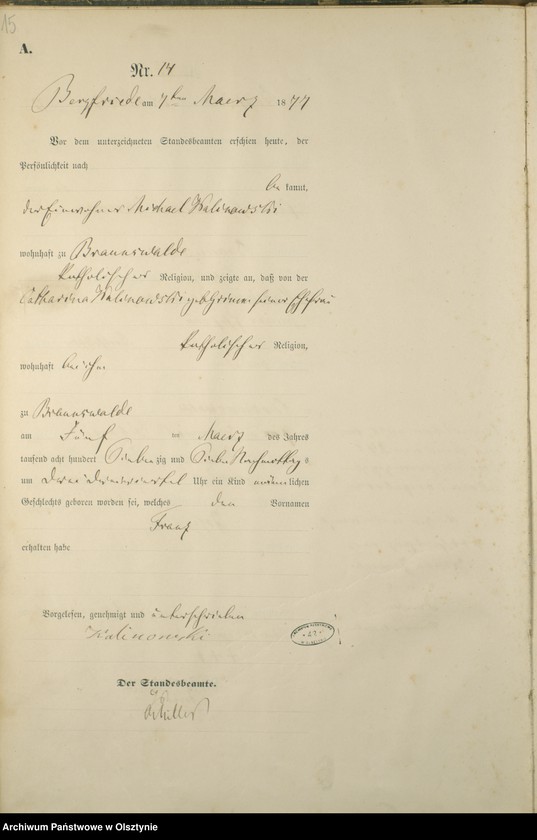 15
A.
Nr. 14
Bergfriede am 7ten Maerz 1877
Vor dem unterzeichneten Standesbeamten erschien heute, der
Persönlichkeit nach
be kannt,
der Einwohner Michael Kalinowski
wohnhaft zu Braunswalde
katholischer Religion, und zeigte an, daß von der
Catharina Kalinowski geb. seiner Ehefrau
katholischer Religion,
wohnhaft bei ihm
zu Braunswalde
am Fünf ten Maerz des Jahres
tausend acht hundert Sieben zig und Sieben Nachmittag s
um drei dreiviertel Uhr ein Kind männlichen
Geschlechts geboren worden sei, welches den Vornamen
Franz
erhalten habe
Vorgelesen, genehmigt und unterschrieben
Kalinowski
Der Standesbeamte.
Archiwum Państwowe w Olsztynie